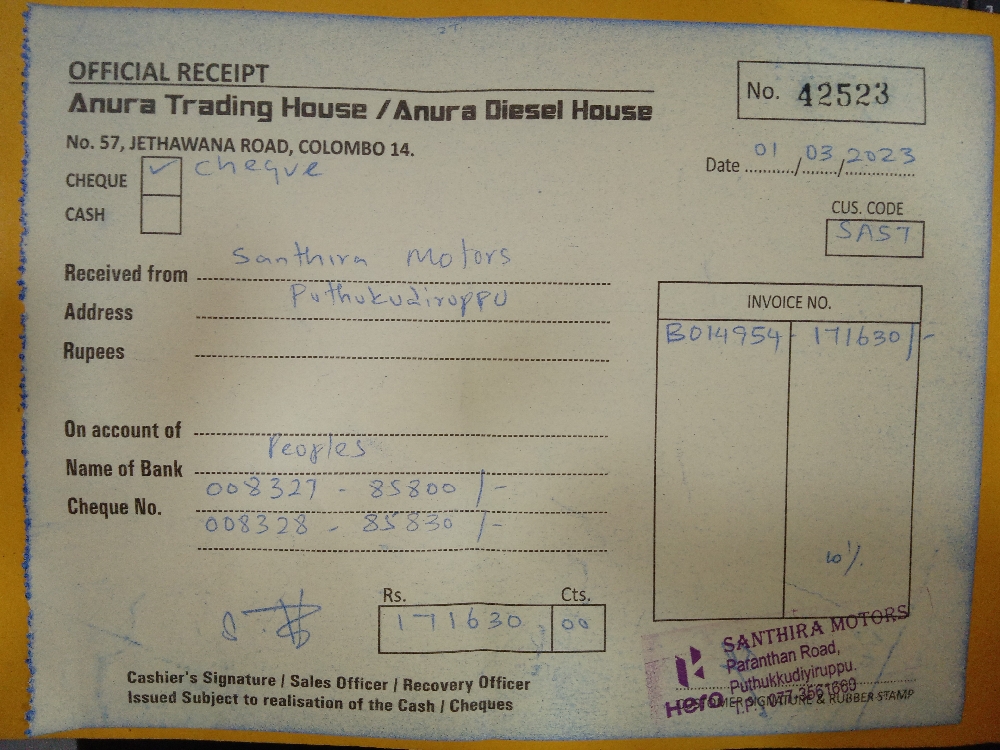 OFFICIAL RECEIPT
No. 42523
Anura Trading House / Anura Diesel House
No. 57, JETHAWANA ROAD, COLOMBO 14.
Date 01/03/2023
CHEQUE ✓ cheque
CASH
CUS. CODE
SAST
Received from Santhira Motors
Address Puthukudiruppu
Rupees
INVOICE NO.
B014954 - 171630/-
On account of
Name of Bank Peoples
Cheque No. 008327 - 85800/-
008328 - 85830/-
10%
Rs. Cts.
171630 00
Cashier's Signature / Sales Officer / Recovery Officer
Issued Subject to realisation of the Cash / Cheques
SANTHIRA MOTORS
Paranthan Road,
Puthukkudiyiruppu.
Hero T.P: 077-3561660
CUSTOMER SIGNATURE & RUBBER STAMP